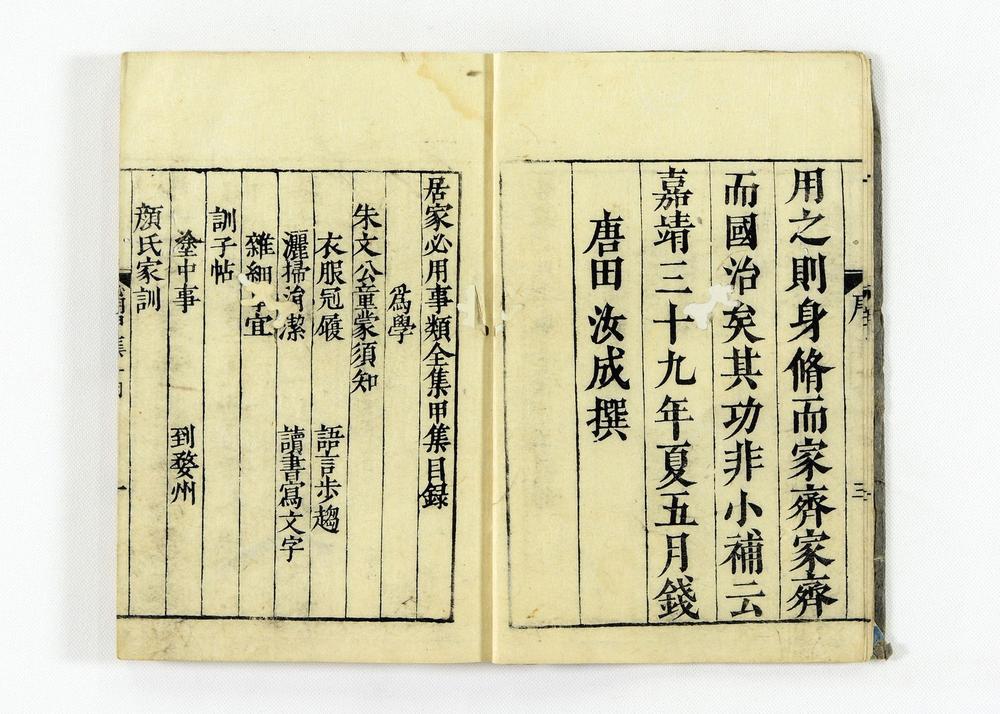 用之則身脩而家齊家齊
而國治矣其功非小補云
嘉靖三十九年夏五月錢
唐田汝成撰
序
三
居家必用事類全集甲集目録
爲學
朱文公童蒙須知
衣服冠履 語言歩趨
灑掃涓潔 讀書寫文字
雜細 宜
訓子帖
塗中事 到婺州
顔氏家訓